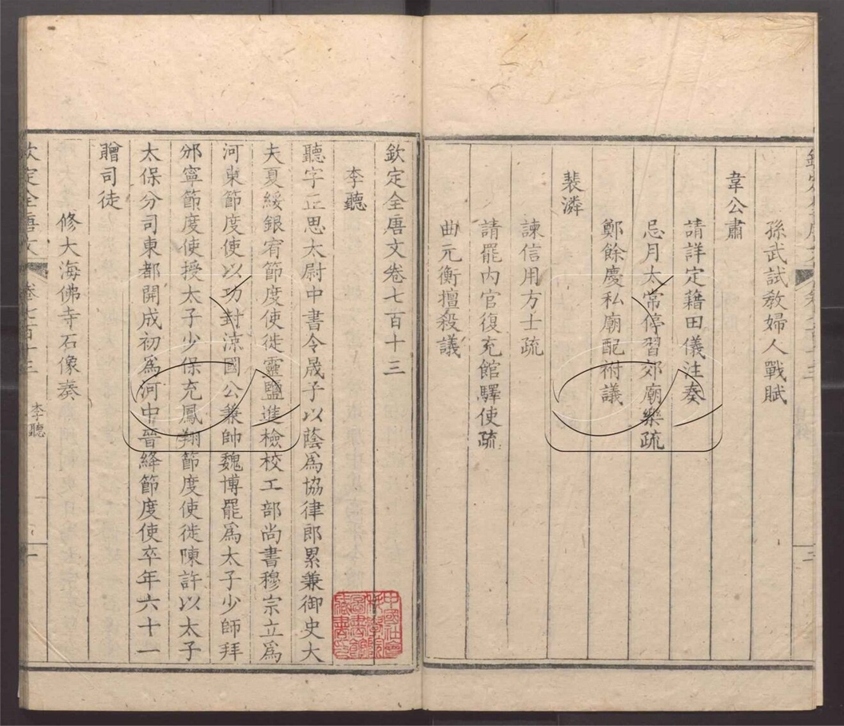 孫武試教婦人戰賦
韋公肅
請詳定藉田儀注奏
忌月太常停習郊廟樂疏
鄭餘慶私廟配祔議
裴潾
諫信用方士疏
請罷內官復充館驛使疏
曲元衡擅殺議
欽定全唐文卷七百十三
李聽
聽字正思太尉中書令晟子以蔭為協律郎累兼御史大
夫夏綏銀宥節度使徙靈鹽進檢校工部尚書穆宗立為
河東節度使以功封涼國公兼帥魏博罷為太子少師拜
邠寧節度使授太子少保充鳳翔節度使徙陳許以太子
太保分司東都開成初為河中晉絳節度使卒年六十一
贈司徒
修大海佛寺石像奏
欽定全唐文
卷七百十三
李聽
一